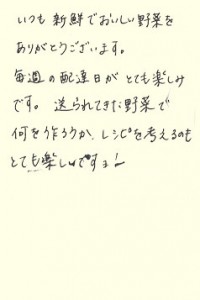 いつも新鮮でおいしい野菜を
ありがとうございます。
毎週の配達日がとても楽しみ
です。送られてきた野菜で
何を作ろうか、レシピを考えるのも
とても楽しいですヨ！